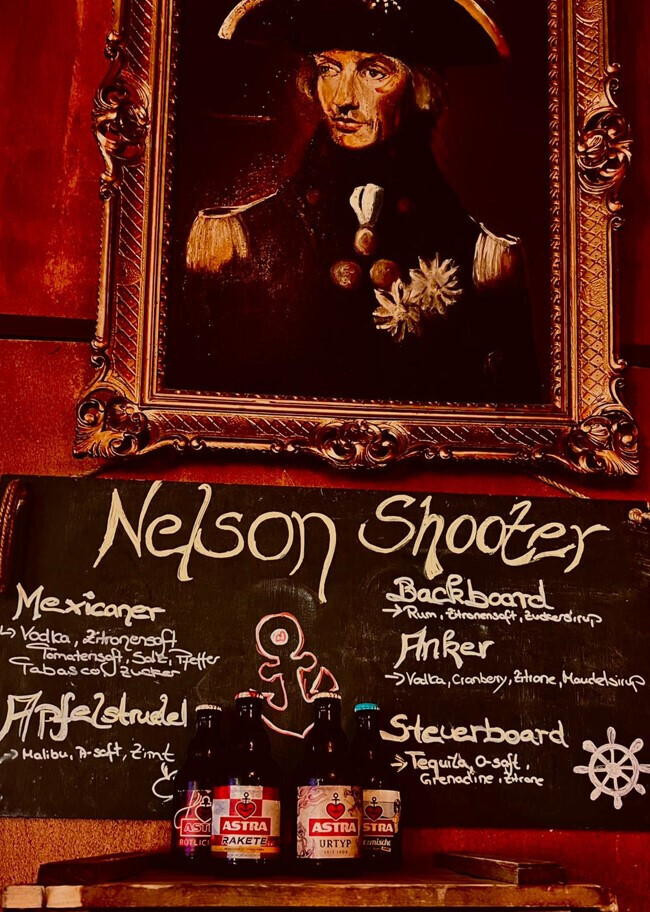 Nelson Shooter
Mexicaner
→ Vodka, Zitronensaft
Tomatensaft, Salz, Pfeffer
Tabasco, Zucker
Apfelstrudel
→ Malibu, A-saft, Zimt
Backboard
→ Rum, Zitronensaft, Zuckersirup
Anker
→ Vodka, Cranbery, Zitrone, Mandelsirup
Steuerboard
→ Tequila, O-saft,
Grenadine, Zitrone
ASTRA
RAKETE
ASTRA
URTYP